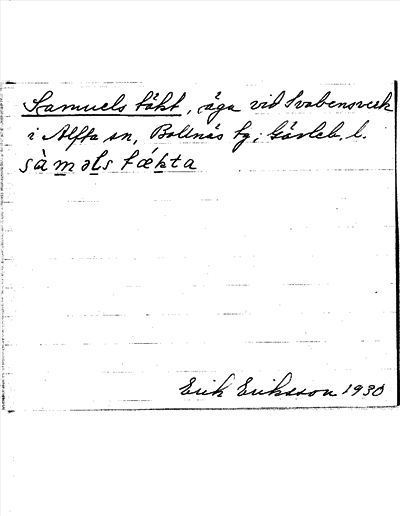 Samuels täkt, äga vid Svabensverk
i Alfta sn, Bollnäs tg; Gävleb. l.
sàməls tǽkta
Erik Eriksson 1930